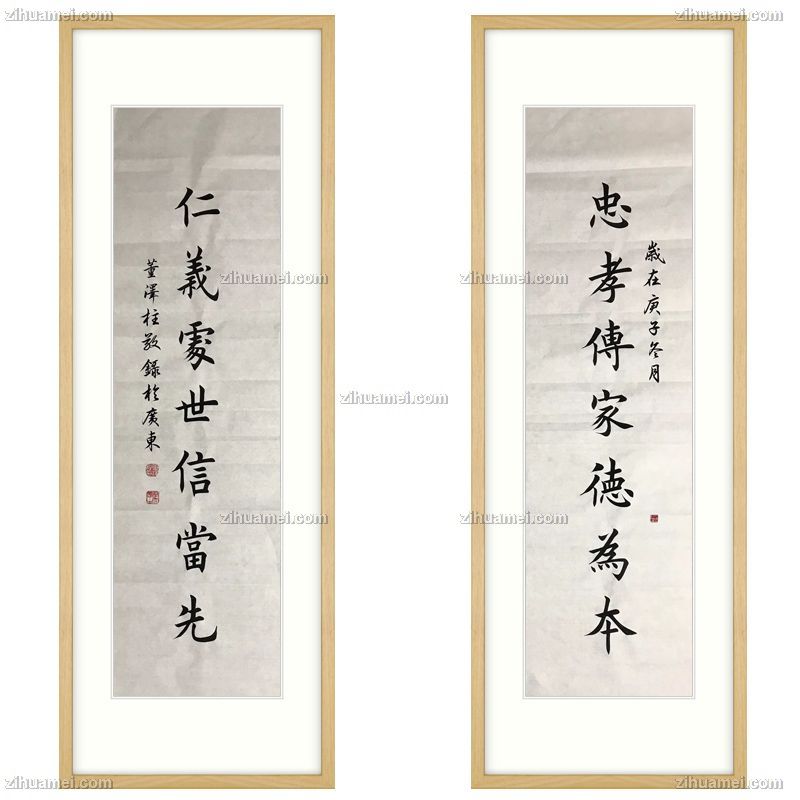 忠孝傳家德為本
歲在庚子冬月
仁義處世信當先
董澤柱敬錄於廣東
zihuamei.com
zihuamei.com
zihuamei.com
zihuamei.com
zihuamei.com
zihuamei.com
zihuamei.com
zihuamei.com
zihuamei.com
zihuamei.com
zihuamei.com
zihuamei.com
zihuamei.com